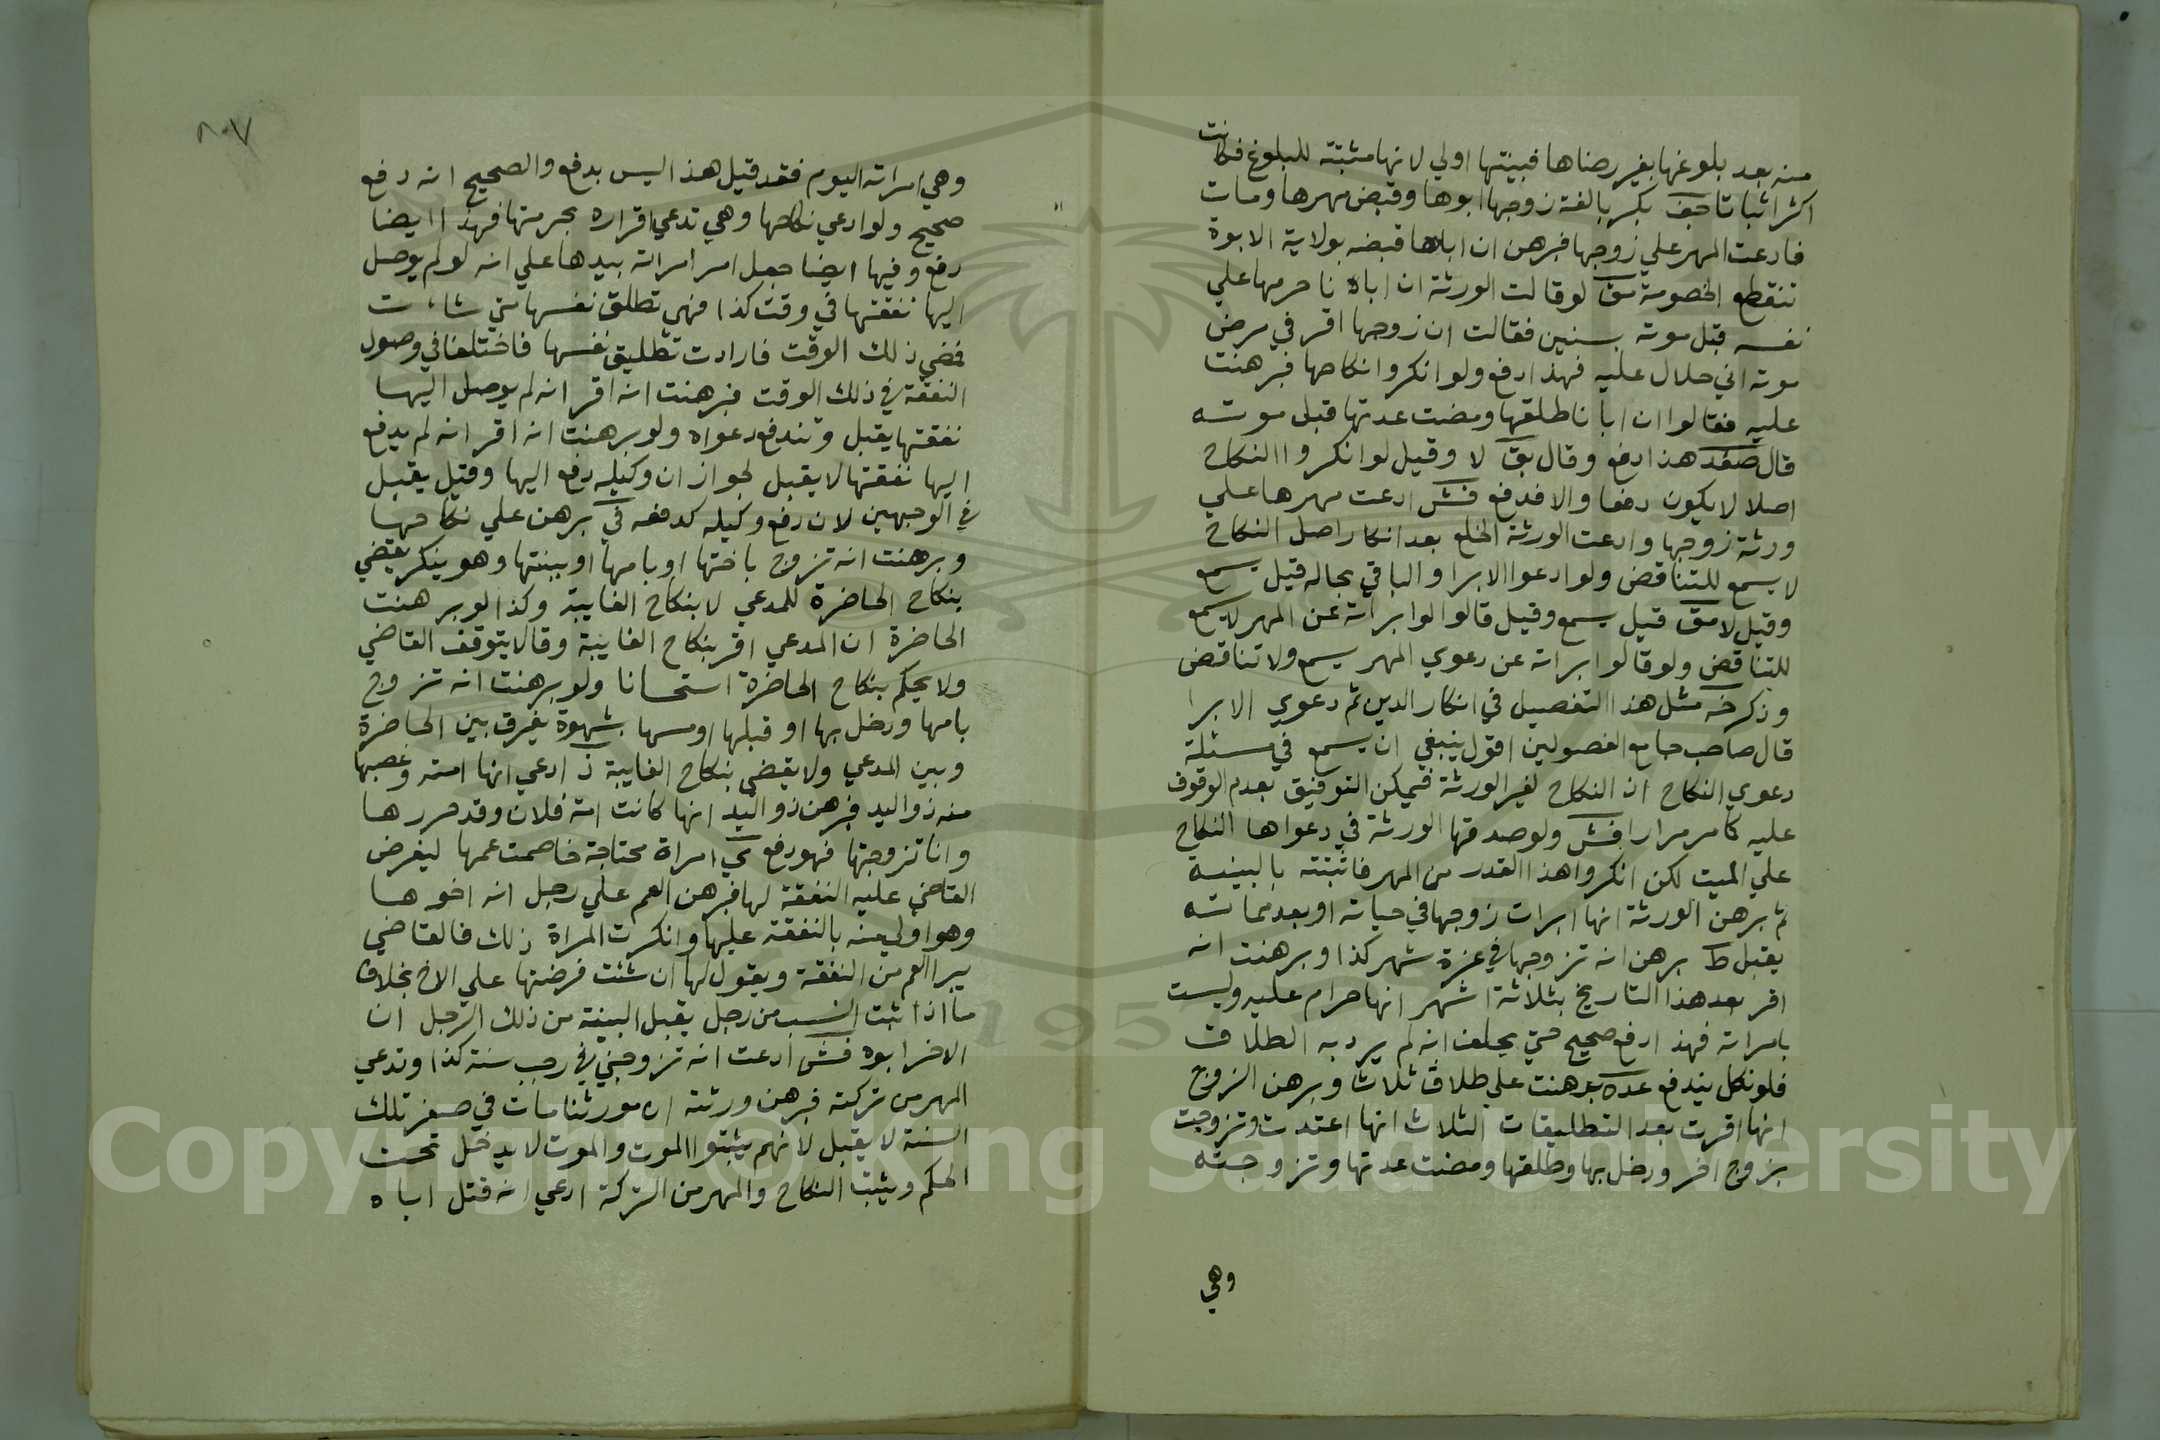 منه بعد بلوغها بغير رضاها فبينتها اولي لانها مثبتة للبلوغ فكانت
اكثر اثباتا بكر بالغة زوجها ابوها وقبض مهرها ومات
فادعت المهر علي زوجها فبرهن ان اباها قبضه بولاية الابوة
تنقطع الخصومة لو قالت الورثة ان ابانا حرمها علي
نفسه قبل موته بسنين فقالت ان زوجها اقر في مرض
موته اني حلال عليه فهذا دفع ولو انكروا نكاحها فبرهنت
عليه فقالوا ان ابانا طلقها ومضت عدتها قبل موته
قال هذا دفع وقال لا وقيل لو انكروا النكاح
اصلا لا يكون دفعا والا فدفع فش ادعت مهرها علي
ورثة زوجها وادعت الورثة الخلع بعد انكار اصل النكاح
لا يسمع للتناقض ولو ادعوا الابرا والباقي بحاله قيل يسمع
وقيل لا قيل يسمع وقيل قالوا لو ابراته عن المهر لا يسمع
للتناقض ولو قالوا ابراته عن دعوي المهر يسمع ولا تناقض
وذكر مثل هذا التفصيل في انكار الدين ثم دعوي الابرا
قال صاحب جامع الفصولين اقول ينبغي ان يسمع في مسئلة
دعوي النكاح ان النكاح لغير الورثة فيمكن التوفيق بعدم الوقوف
عليه كما مر مرارا فش ولو صدقها الورثة في دعواها النكاح
علي الميت لكن انكروا هذا القدر من المهر فاثبتته بالبينة
ثم برهن الورثة انها ابرات زوجها في حياته او بعد مماته
يقبل ط برهن انه تزوجها في غرة شهر كذا وبرهنت انه
اقر بعد هذا التاريخ بثلاثة اشهر انها حرام عليه وليست
بامراته فهذا دفع صحيح حتي يحلف انه لم يرد به الطلاق
فلو نكل يندفع عده برهنت علي طلاق ثلاث وبرهن الزوج
انها اقرت بعد التطليقات الثلاث انها اعتدت وتزوجت
بزوج اخر ودخل بها وطلقها ومضت عدتها وتزوجته
وهي
٨٠٧
وهي امراته اليوم فقد قيل هذا ليس بدفع والصحيح انه دفع
صحيح ولو ادعي نكاحها وهي تدعي اقراره بحرمتها فهذا ايضا
دفع وفيها ايضا جعل امر امراته بيدها علي انه لو لم يوصل
اليها نفقتها في وقت كذا فهي تطلق نفسها متي شاءت
فمضي ذلك الوقت فارادت تطليق نفسها فاختلفا في وصول
النفقة في ذلك الوقت فبرهنت انه اقر انه لم يوصل اليها
نفقتها يقبل وتندفع دعواه ولو برهنت انه اقر انه لم يدفع
اليها نفقتها لا يقبل لجواز ان وكيله دفع اليها وقيل يقبل
في الوجهين لان دفع وكيله كدفعه في برهن علي نكاحها
وبرهنت انه تزوج باختها او بامها او ببنتها وهو ينكر يقضي
بنكاح الحاضرة للمدعي لا بنكاح الغايبة وكذا لو برهنت
الحاضرة ان المدعي اقر بنكاح الغايبة وقالا يتوقف القاضي
ولا يحكم بنكاح الحاضرة استحسانا ولو برهنت انه تزوج
بامها ودخل بها او قبلها او مسها بشهوة يفرق بين الحاضرة
وبين المدعي ولا يقضي بنكاح الغايبة ادعي انها امته وغصبها
منه ذو اليد فبرهن ذو اليد انها كانت امة فلان وقد حررها
وانا تزوجتها فهو دفع امراة محتاجة خاصمت عمها ليفرض
القاضي عليه النفقة لها فبرهن العم علي رجل انه اخوها
وهو اولي منه بالنفقة عليها وانكرت المراة ذلك فالقاضي
يبرا العم من النفقة ويقول لها ان شئت فرضتها علي الاخ بخلاف
ما اذا ثبت النسب من رجل يقبل البينة من ذلك الرجل ان
الاخر ابوه فش ادعت انه تزوجني في رجب سنة كذا وتدعي
المهر من تركته فبرهن ورثته ان مورثنا مات في صفر تلك
السنة لا يقبل لانهم يثبتوا الموت والموت لا يدخل تحت
الحكم ويثبت النكاح والمهر من التركة ادعي انه قتل اباه
Copyright © King Saud University
1957